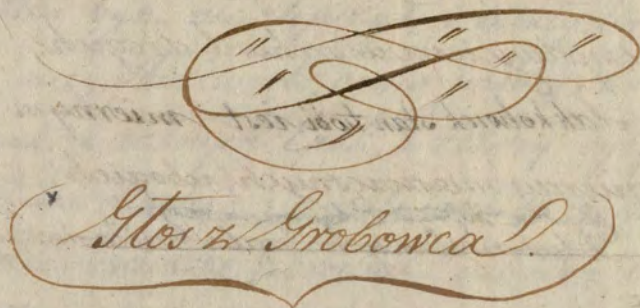 Głos z Grobowca!